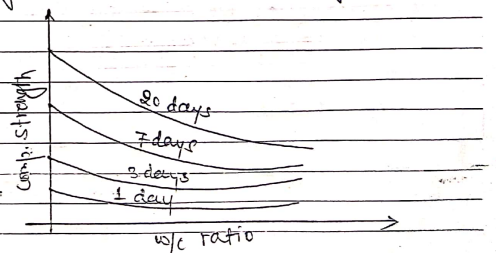 Comp. strength
20 days
7 days
3 days
1 day
w/c ratio